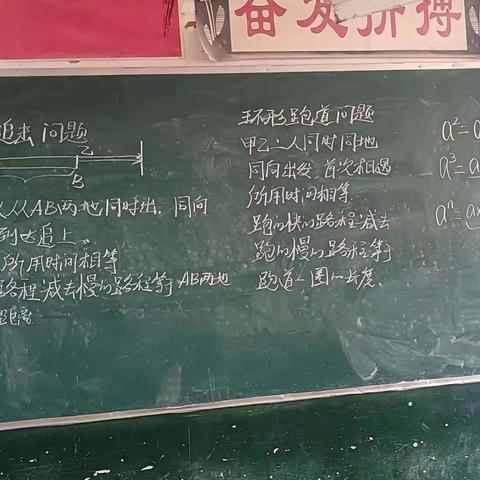 奋发拼搏
追击问题
乙
B
从AB两地同时出,同向
到达追上。
所用时间相等
路程减去慢的路程等于AB两地
距离
环形跑道问题
甲乙二人同时同地
同向出发,首次相遇
所用时间相等.
跑的快的路程减去
跑的慢的路程等于
跑道一圈的长度.
a²=a
a³=a
aⁿ=a×